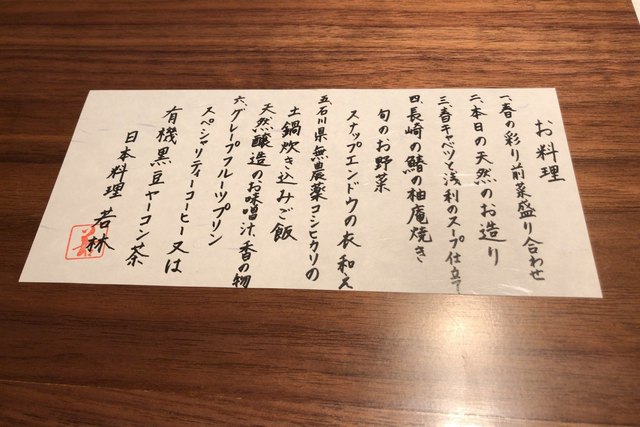 お料理
一、春の彩り前菜盛り合わせ
二、本日の天然のお造り
三、春キャベツと浅利のスープ仕立て
四、長崎の鰆の柚庵焼き
旬のお野菜
スナップエンドウの衣和え
五、石川県無農薬コシヒカリの
土鍋炊き込みご飯
天然醸造のお味噌汁、香の物
六、グレープフルーツプリン
スペシャリティーコーヒー又は
有機黒豆ヤーコン茶
日本料理 若林